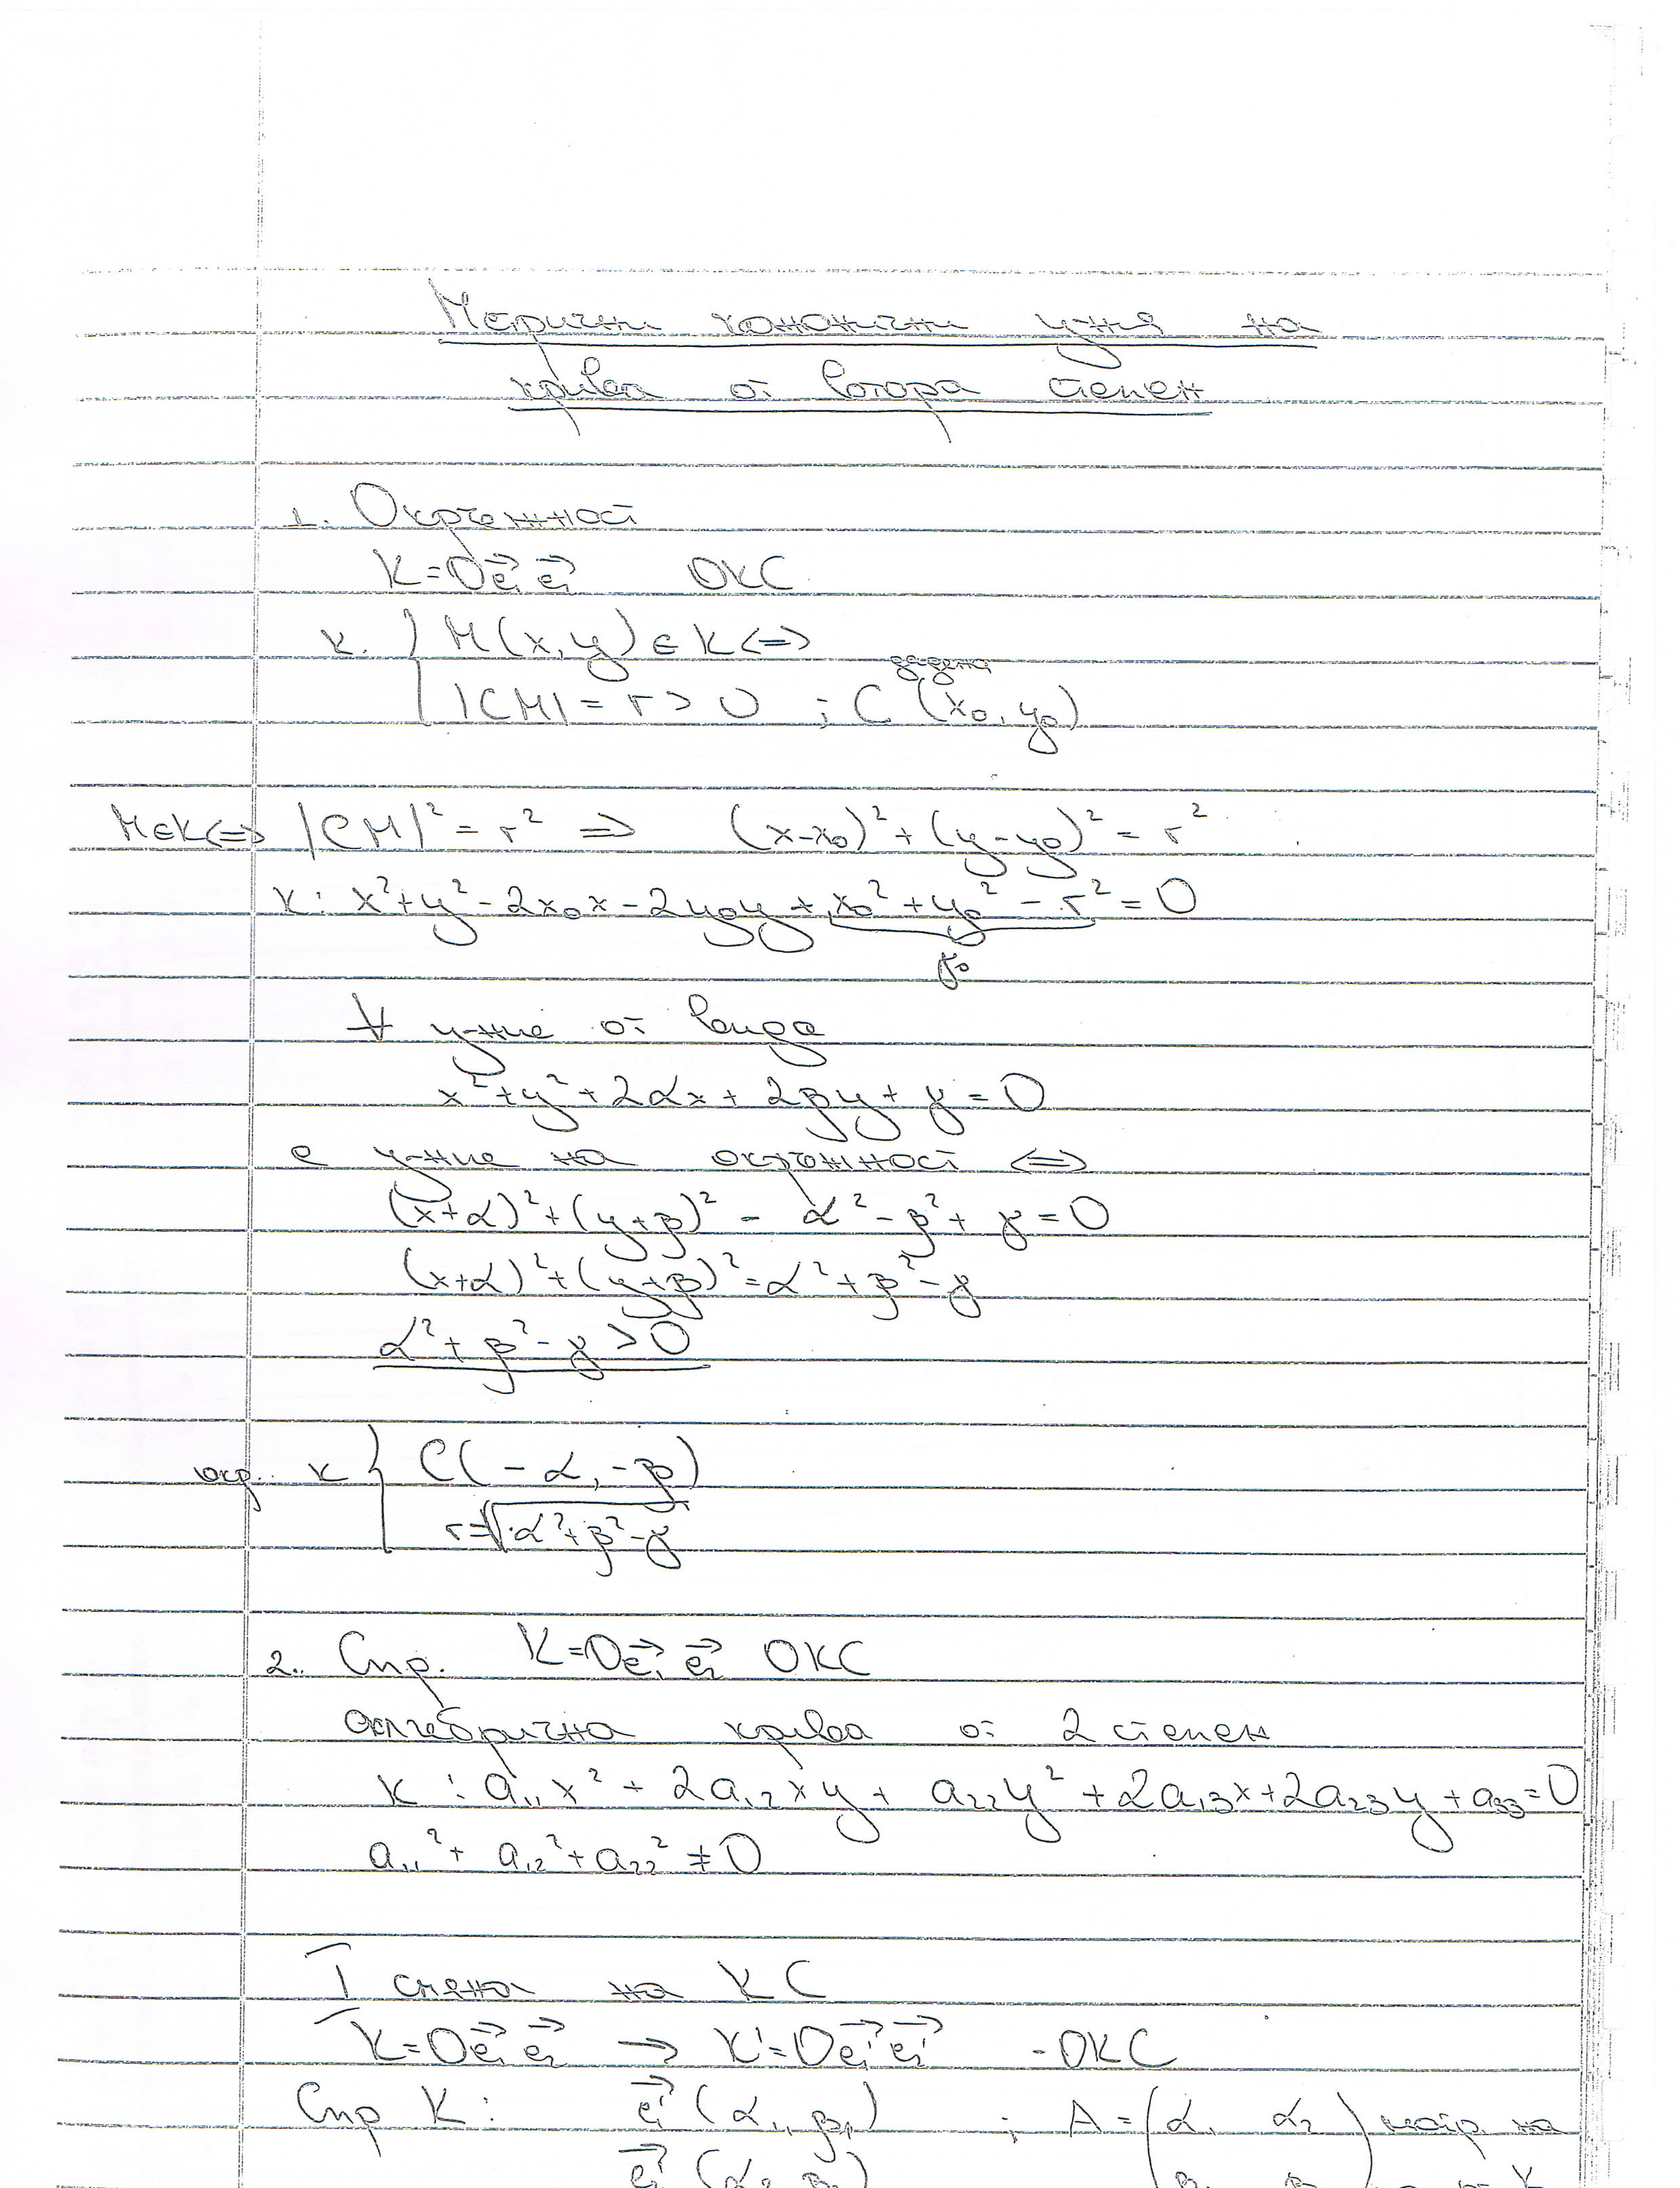 Метрични канонични у-ния на
крива от втора степен
1. Окръжност
K=O e⃗₁ e⃗₂ ОКС
k: { M(x,y) ∈ k <=>
|CM| = r > 0 ; C (x₀, y₀)
дадена
M∈k<=> |CM|² = r² => (x-x₀)² + (y-y₀)² = r²
k: x² + y² - 2x₀x - 2y₀y + x₀² + y₀² - r² = 0
γ
∀ у-ние от вида
x² + y² + 2αx + 2βy + γ = 0
е у-ние на окръжност <=>
(x+α)² + (y+β)² - α² - β² + γ = 0
(x+α)² + (y+β)² = α² + β² - γ
α² + β² - γ > 0
окр. k { C(-α, -β)
r=√(α² + β² - γ)
2. Спр. K=O e⃗₁ e⃗₂ ОКС
алгебрична крива от 2 степен
k : a₁₁x² + 2a₁₂xy + a₂₂y² + 2a₁₃x + 2a₂₃y + a₃₃ = 0
a₁₁² + a₁₂² + a₂₂² ≠ 0
I смяна на КС
K=O e⃗₁ e⃗₂ → K'=O e⃗₁' e⃗₂' - ОКС
Спр K: e⃗₁' (α₁, β₁) ; A = (α₁ α₂) матр. на
e⃗₂' (α₂ β₂)